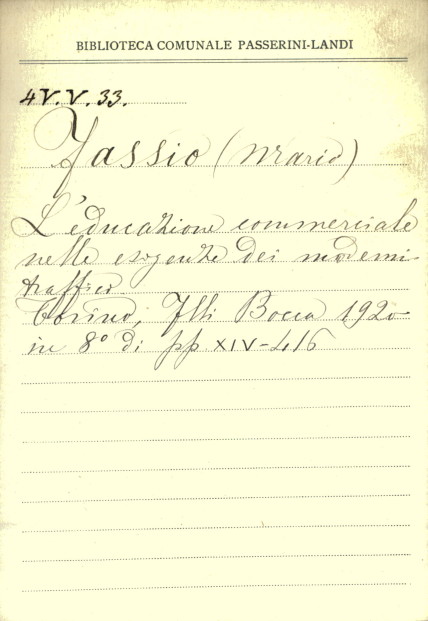 BIBLIOTECA COMUNALE PASSERINI-LANDI
4V.V.33.
Fassio (Mario)
L'educazione commerciale
nelle esigenze dei moderni
traffici
Torino, Flli Bocca 1920
in 8° di pp XIV-416